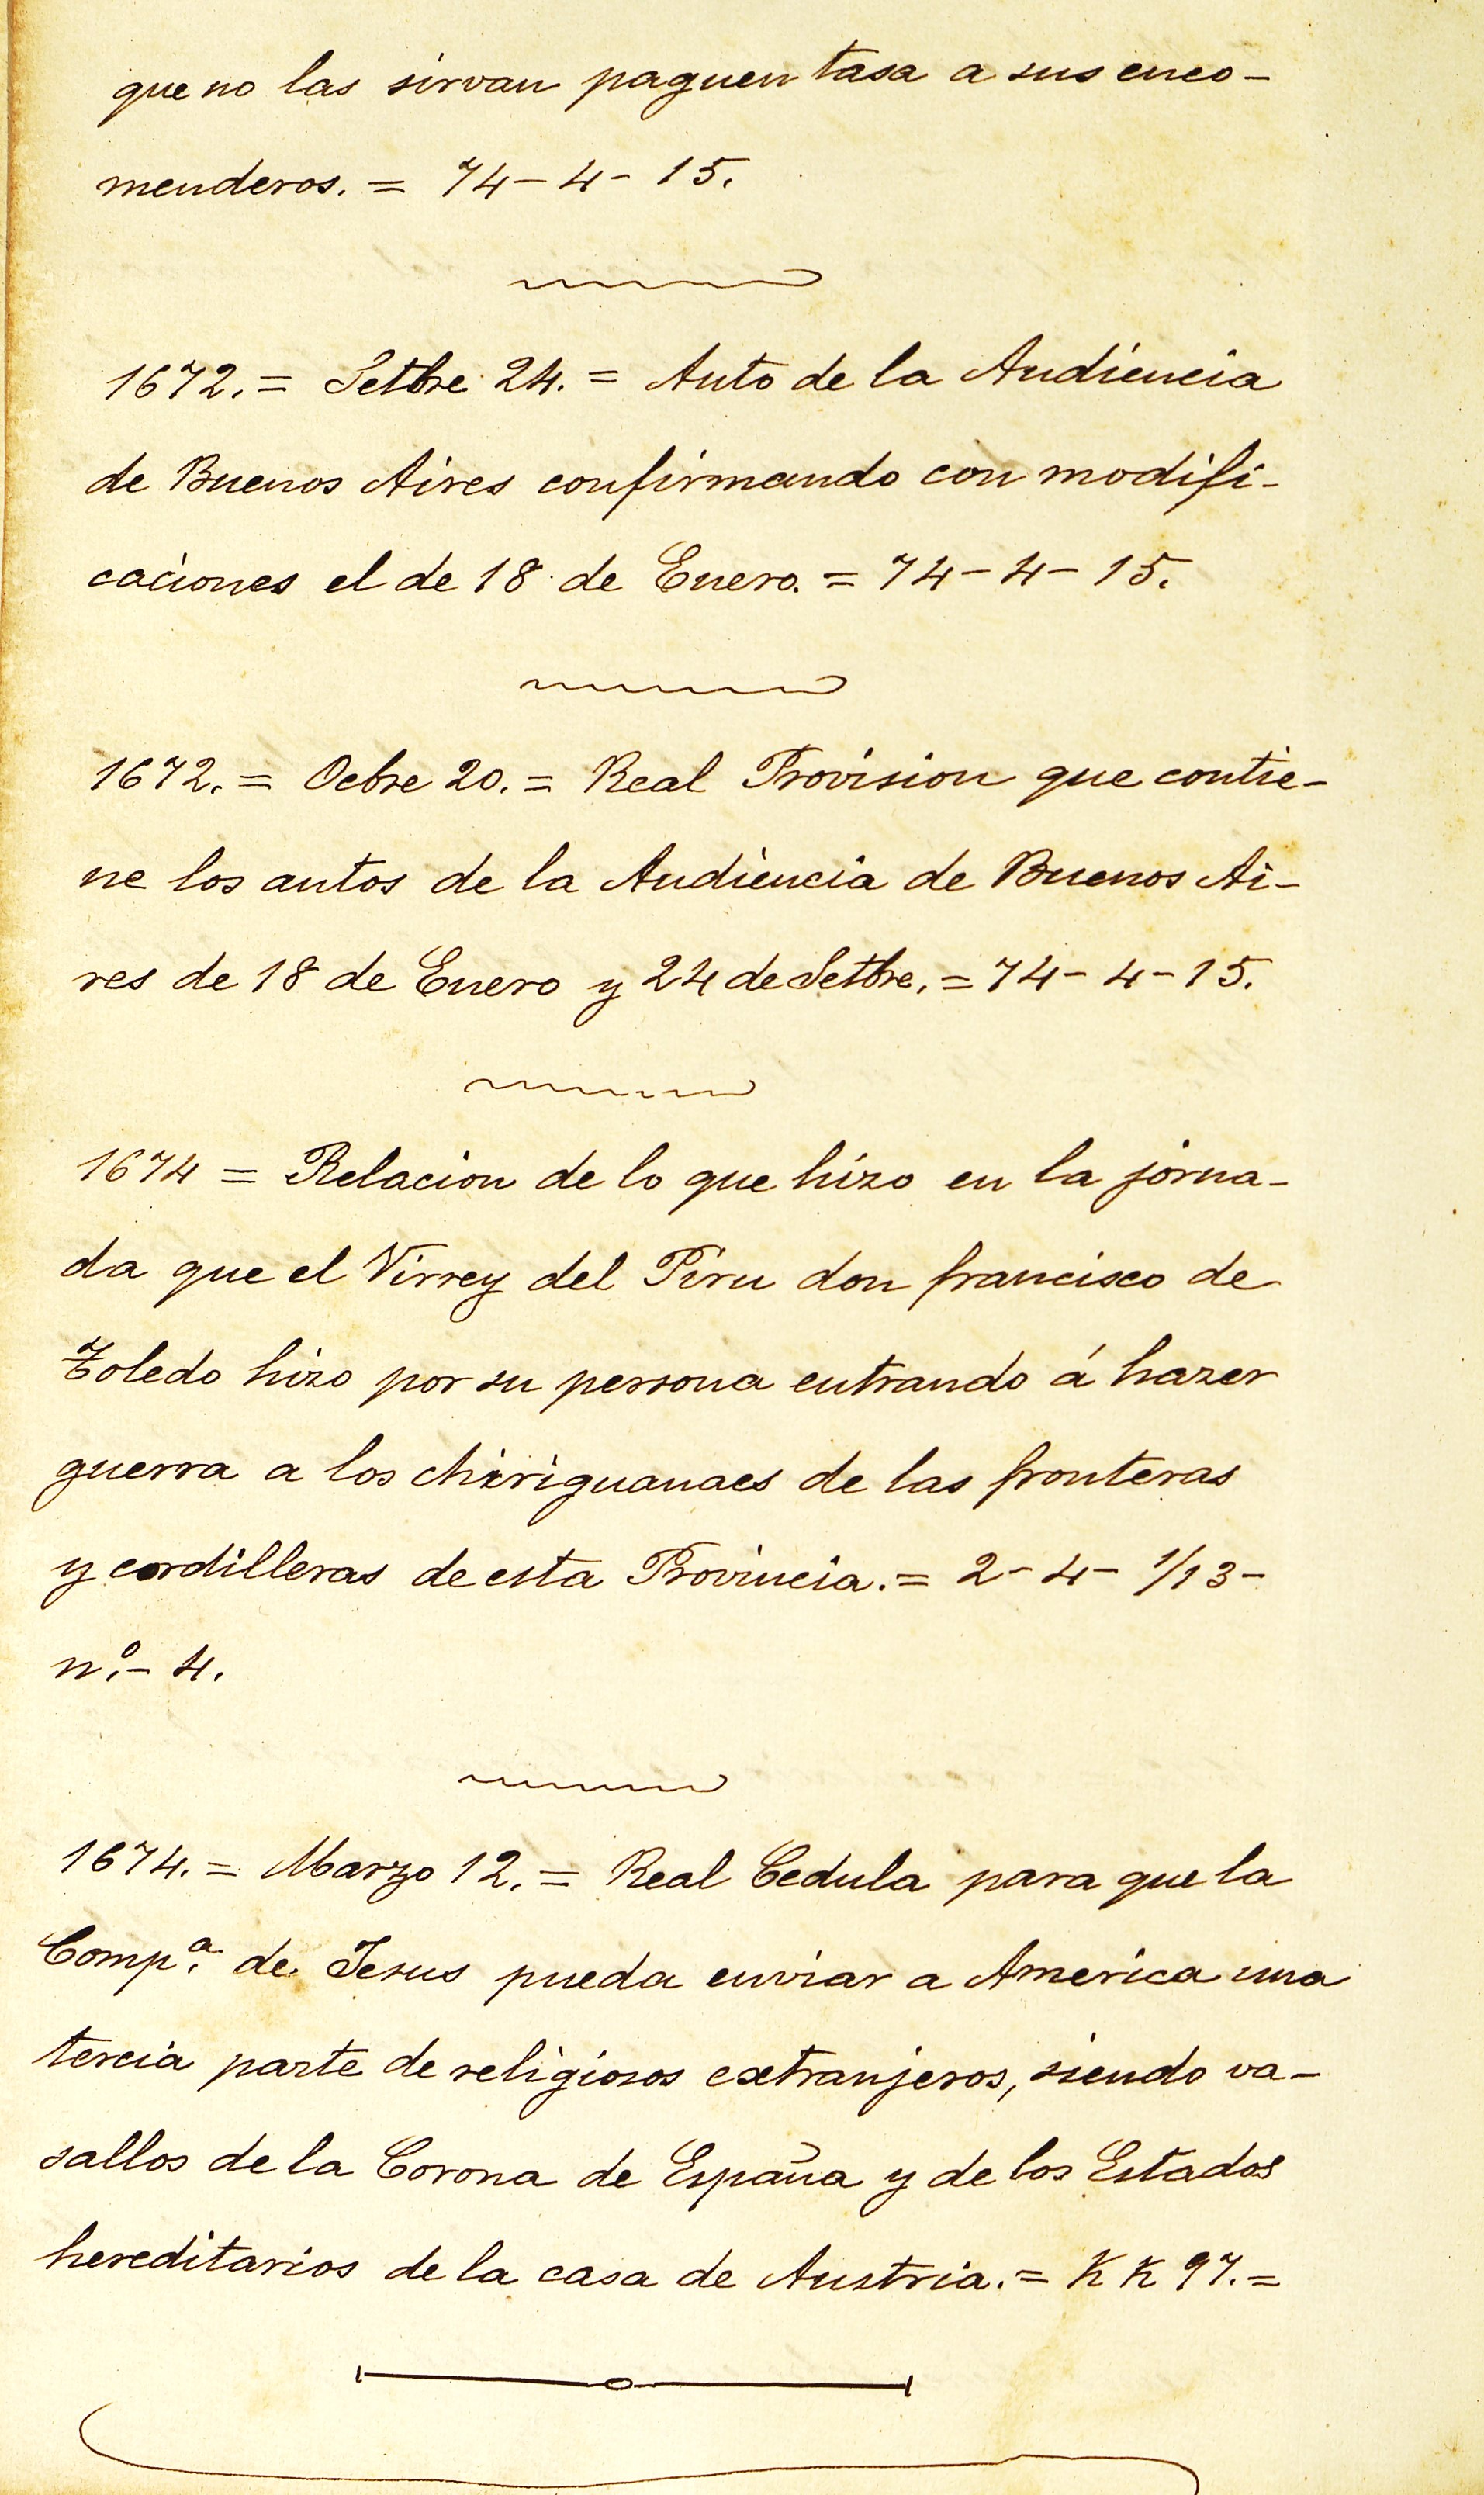 que no las sirvan paguen tasa a sus enco-
menderos. = 74 - 4 - 15.
1672. = Setbre 24. = Auto de la Audiencia
de Buenos Aires confirmando con modifi-
caciones el de 18 de Enero. = 74 - 4 - 15.
1672. = Ocbre 20. = Real Provision que contie-
ne los autos de la Audiencia de Buenos Ai-
res de 18 de Enero y 24 de Setbre. = 74 - 4 - 15.
1674 = Relacion de lo que hizo en la jorna-
da que el Virrey del Piru don francisco de
Toledo hizo por su persona entrando á hazer
guerra a los chiriguanaes de las fronteras
y cordilleras de esta Provincia. = 2 - 4 - 1/13 -
nº. - 4.
1674. = Marzo 12. = Real Cedula para que la
Compª. de Jesus pueda enviar a America una
tercia parte de religiosos extranjeros, siendo va-
sallos de la Corona de España y de los Estados
hereditarios de la casa de Austria. = K K 97. =